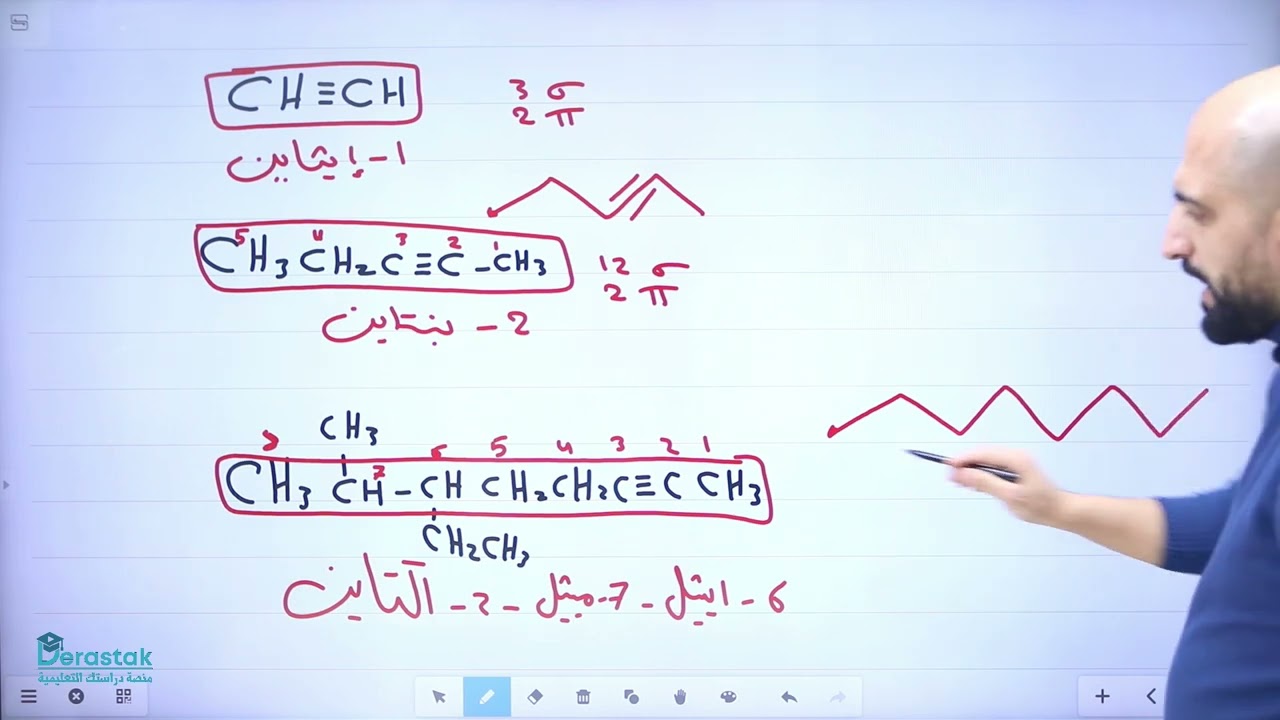 CH≡CH
3 σ
2 π
1- إيثاين
5 4 3 2 1
CH3 CH2 C≡C-CH3
12 σ
2 π
2- بنتاين
CH3
8 7 6 5 4 3 2 1
CH3 CH-CH CH2 CH2 C≡C CH3
CH2CH3
6- ايثيل - 7- ميثيل - 2- اكتاين
Derastak
منصة دراستك التعليمية